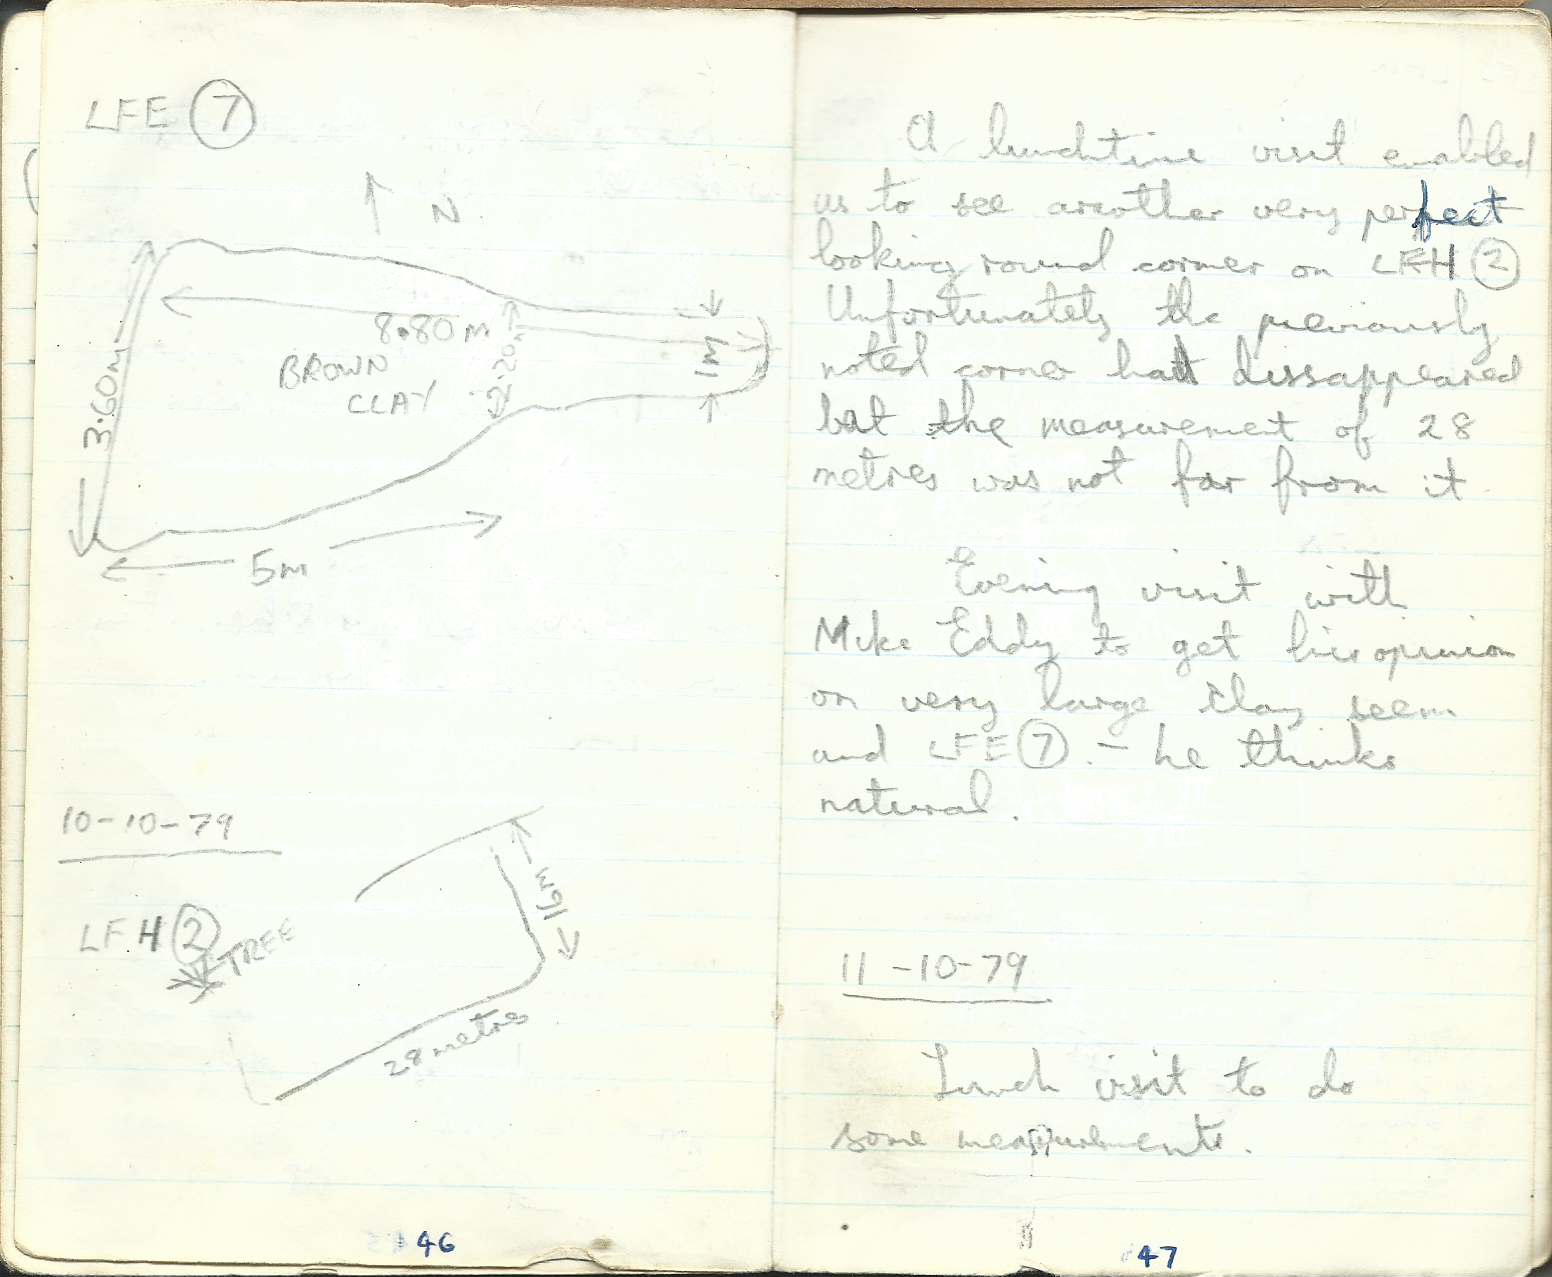 LFE 7
N
8.80 m
2.20m
1M
BROWN
CLAY
3.60m
5m
10-10-79
LFH 2
TREE
16M
28 metres
46
A lunchtime visit enabled
us to see another very perfect
looking round corner on LFH 2
Unfortunately the previously
noted corner had dissappeared
but the measurement of 28
metres was not far from it
Evening visit with
Mike Eddy to get his opinion
on very large clay seem
and LFE 7. - he thinks
natural.
11-10-79
Lunch visit to do
some measurements.
47